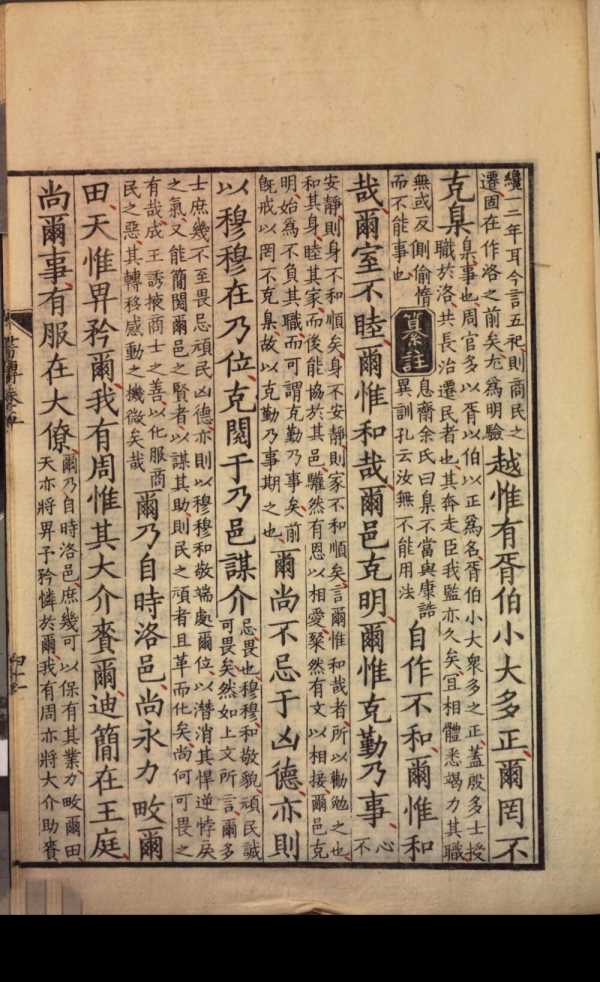 纔一二年耳今言五祀則商民之
遷固在作洛之前矣尤爲明驗
越惟有胥伯小大多正爾罔不
克臬
臬事也周官多以胥以伯以正爲名胥伯小大衆多之正蓋殷多士授
職於洛共長治遷民者也其奔走臣我監亦久矣宜相體悉竭力其職
無或反側偷惰
而不能事也
纂註
息齋余氏曰臬不當與康誥
異訓孔云汝無不能用法
自作不和爾惟和
哉爾室不睦爾惟和哉爾邑克明爾惟克勤乃事
心
不
安靜則身不和順矣身不安靜則家不和順矣言爾惟和哉者所以勸勉之也
和其身睦其家而後能協於其邑驩然有恩以相愛粲然有文以相接爾邑克
明始爲不負其職而可謂克勤乃事矣前
旣戒以罔不克臬故以克勤乃事期之也
爾尚不忌于凶德亦則
以穆穆在乃位克閱于乃邑謀介
忌畏也穆穆和敬貌頑民誠
可畏矣然如上文所言爾多
士庶幾不至畏忌頑民凶德亦則以穆穆和敬端處爾位以潛消其悍逆悖戾
之氣又能簡閱爾邑之賢者以謀其助則民之頑者且革而化矣尚何可畏之
有哉成王誘掖商士之善以化服商
民之惡其轉移感動之機微矣哉
爾乃自時洛邑尚永力畋爾
田天惟畀矜爾我有周惟其大介賚爾迪簡在王庭
尚爾事有服在大僚
爾乃自時洛邑庶幾可以保有其業力畋爾田
天亦將畀予矜憐於爾我有周亦將大介助賚
書傳卷五